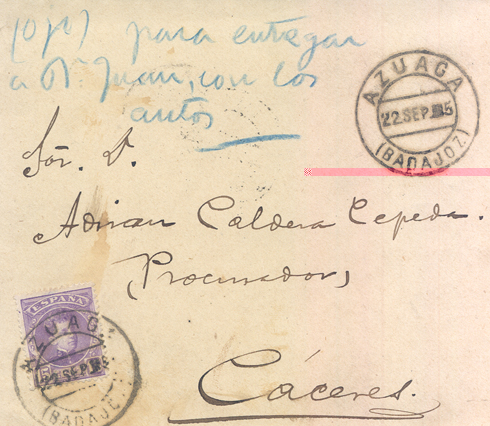 (Ojo) para entregar
a Dn. Juan, con los
autos
AZUAGA
22 SEP 05
(BADAJOZ)
Sor. D.
Adrian Caldera Cepeda.
(Procurador)
Cáceres.
ESPAÑA
AZUAGA
22 SEP
(BADAJOZ)